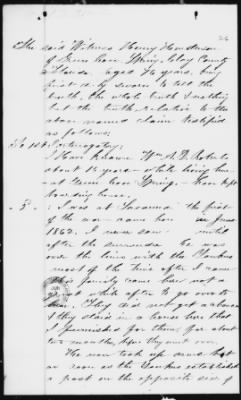 The said Witness Henry Henderson
of Green Cove Spring, Clay County
Florida. aged 74 years, being
first duly sworn to tell the
truth, the whole truth & nothing
but the truth, relative to the
above named claim testified
as follows;
To 1st Interrogatory;
I Have known Wm A. D. Roberts
about 15 years while living here
at Green Cove Spring.
" 2 " I was at Savannah the first
of the war - came here in June
1862. I never saw until
after the surrender he was
over the lines with the Yankees
most of the time after I came
His family came here not a
great while after to go over to
him. They did not get a chance
& they staid in a house here that
I furnished for them, for about
two months, before they went over.
He never took up arms but
as soon as the Yankees established
a post on the opposite side of